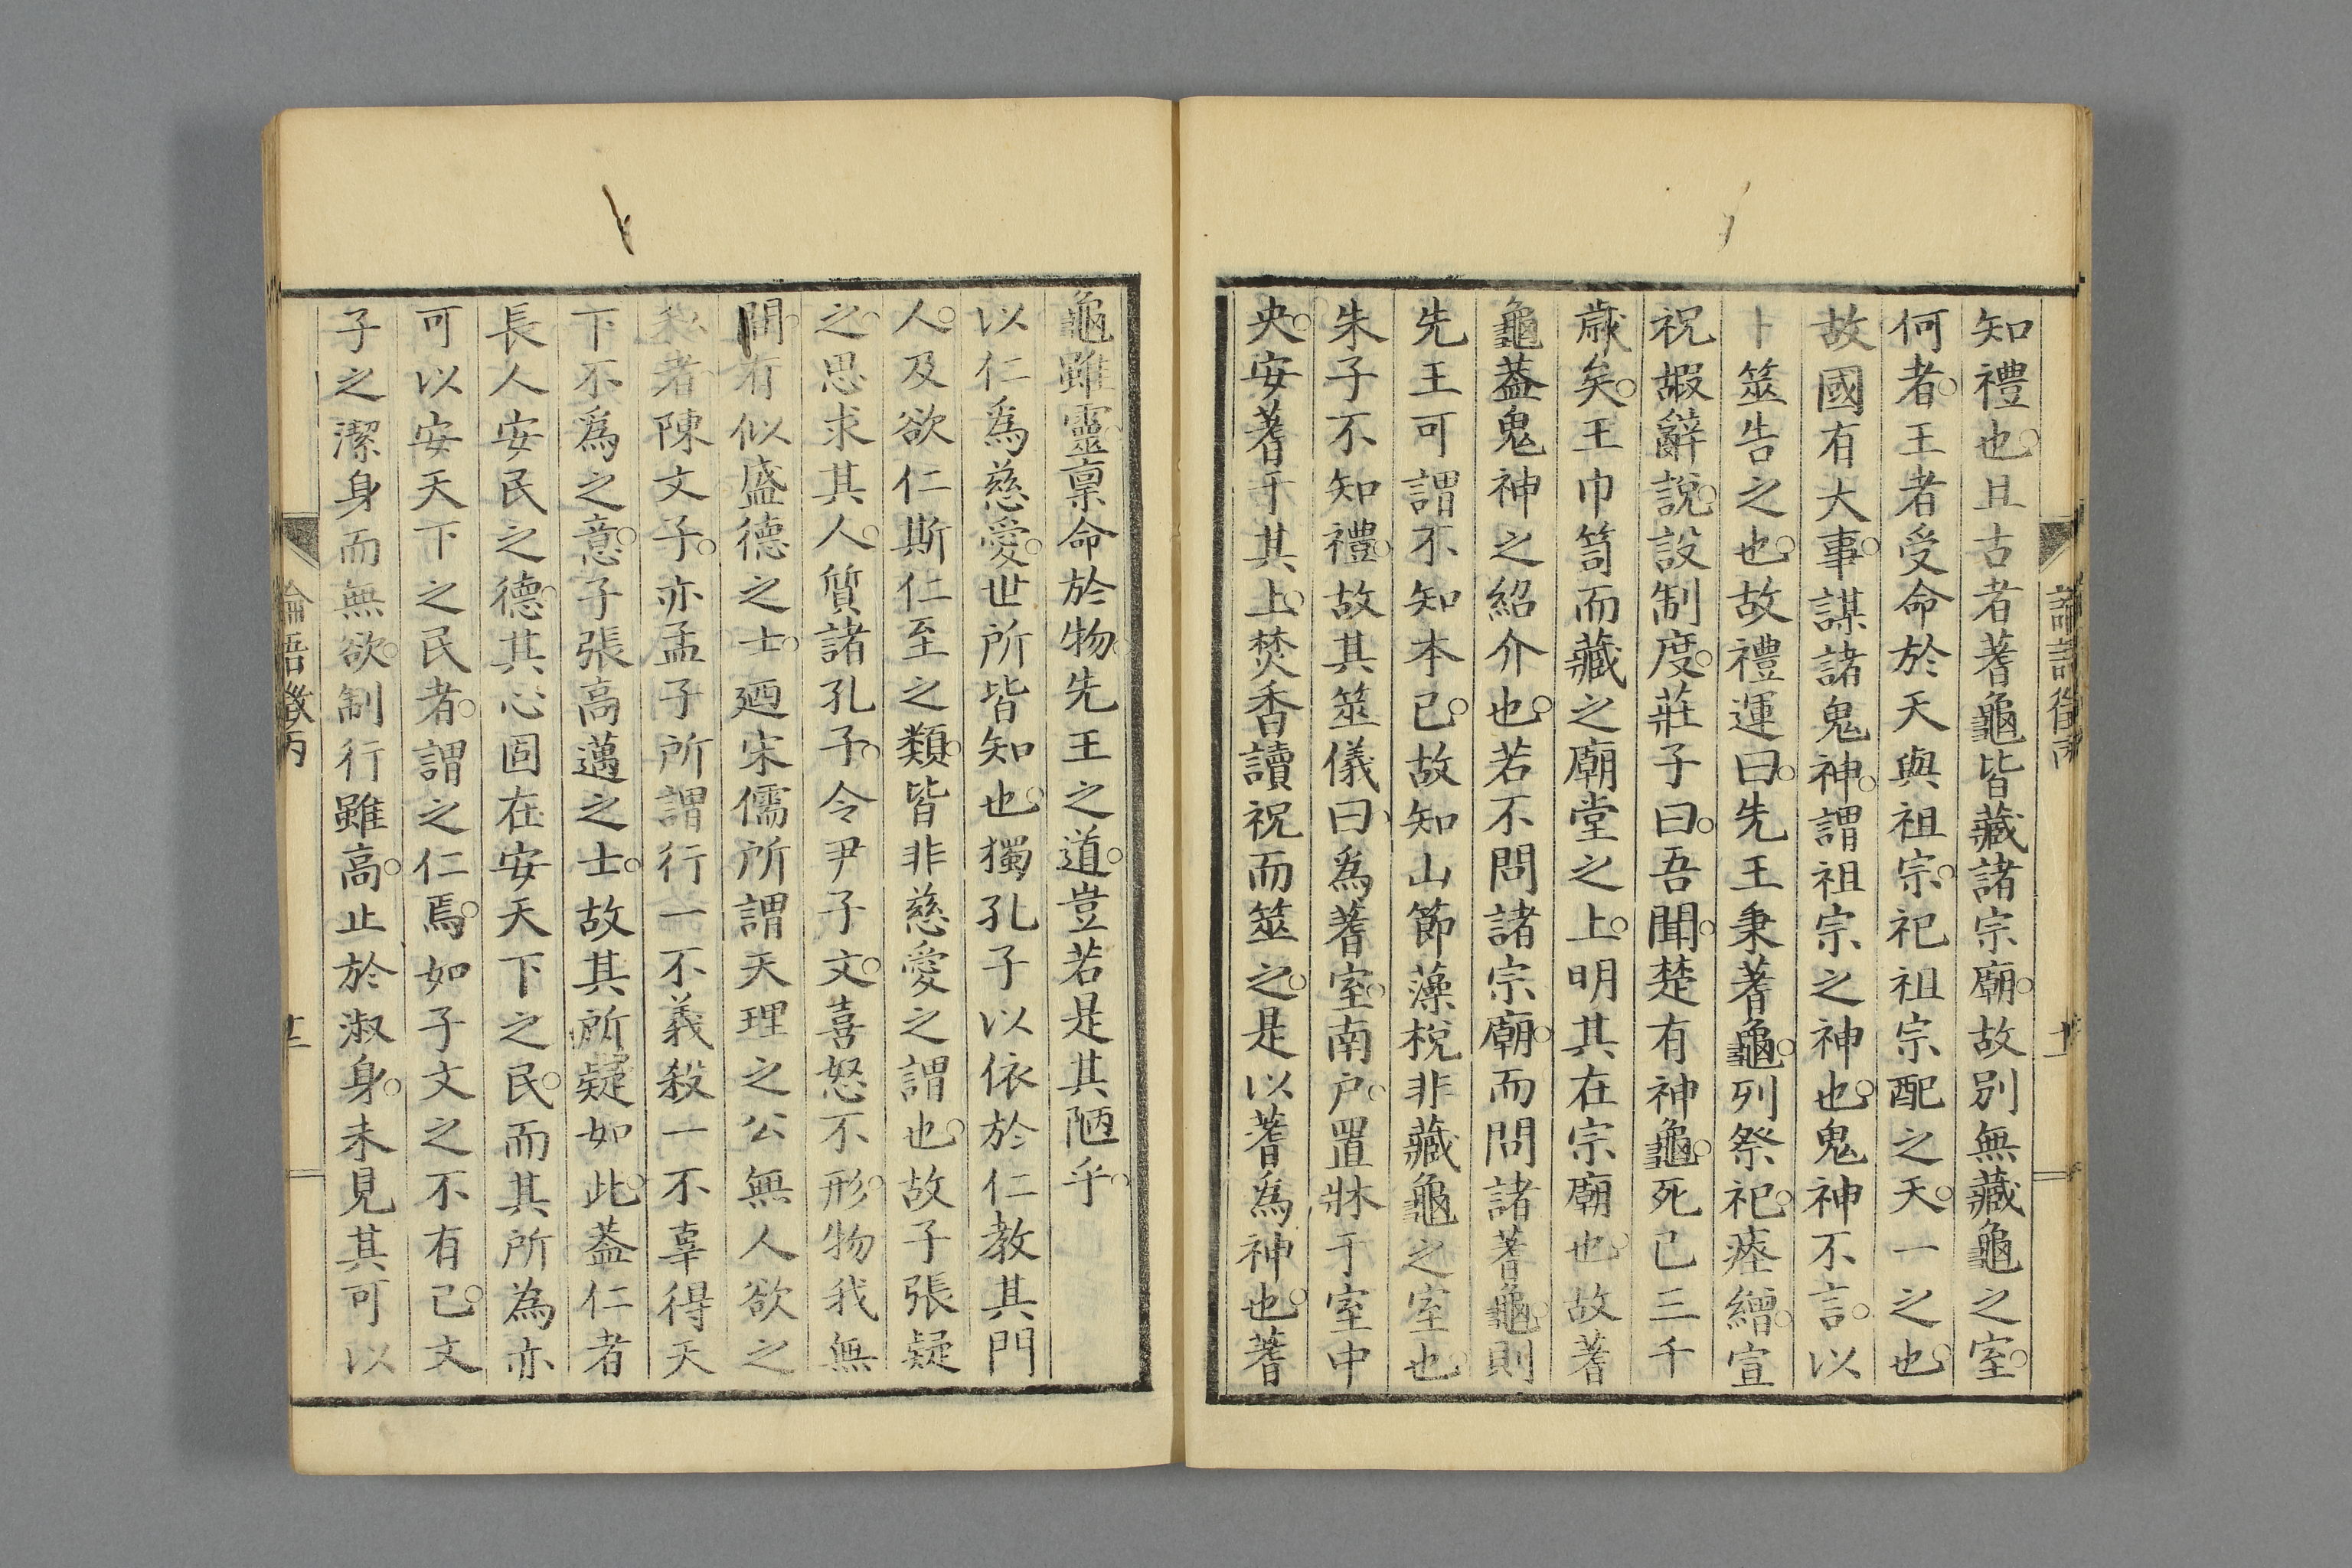 知禮也。且古者蓍龜皆藏諸宗廟。故別無藏龜之室。
何者。王者受命於天與祖宗。祀祖宗配之天。一之也。
故國有大事。謀諸鬼神。謂祖宗之神也。鬼神不言。以
卜筮告之也。故禮運曰。先王秉蓍龜。列祭祀。瘞繒。宣
祝嘏辭說。設制度。莊子曰。吾聞。楚有神龜。死已三千
歲矣。王巾笥而藏之廟堂之上。明其在宗廟也。故蓍
龜葢鬼神之紹介也。若不問諸宗廟。而問諸蓍龜。則
先王可謂不知本已。故知山節藻梲非藏龜之室也。
朱子不知禮。故其筮儀曰、爲蓍室。南户。置牀于室中
央。安蓍于其上。焚香讀祝而筮之。是以蓍爲神也。蓍
論語徵丙
龜雖靈。稟命於物。先王之道。豈若是其陋乎。
以仁爲慈愛。世所皆知也。獨孔子以依於仁教其門
人。及欲仁斯仁至之類。皆非慈愛之謂也。故子張疑
之。思求其人。質諸孔子。令尹子文。喜怒不形。物我無
間。有似盛德之士。廼宋儒所謂天理之公。無人欲之
私者。陳文子。亦孟子所謂行一不義殺一不辜得天
下不爲之意。子張高邁之士。故其所疑如此。葢仁者
長人安民之德。其心固在安天下之民。而其所為亦
可以安天下之民者。謂之仁焉。如子文之不有己。文
子之潔身而無欲。制行雖高。止於淑身。未見其可以
論語徵丙